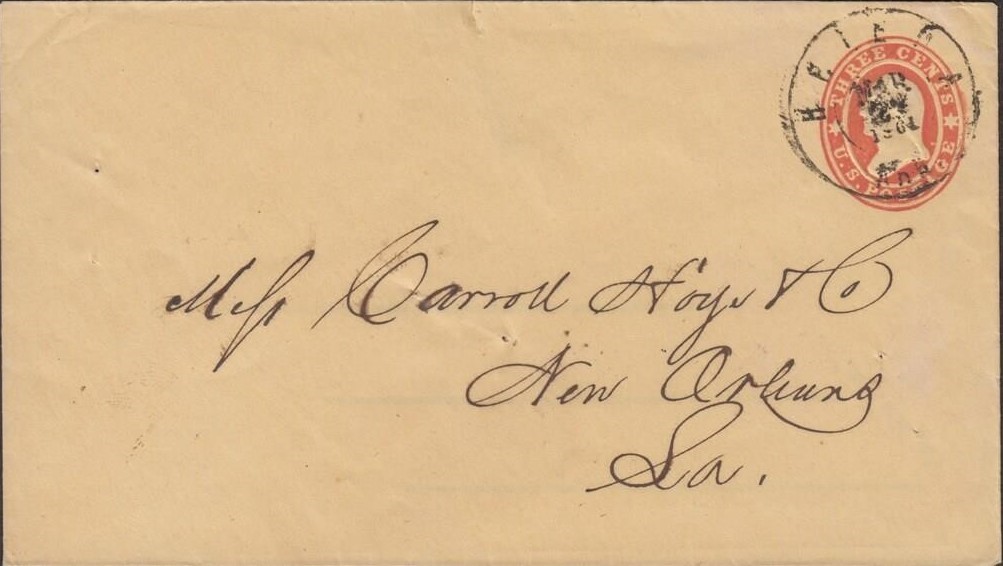 HELENA
MAR
24
1861
Ark
THREE CENTS
U.S. POSTAGE
Mess Carroll Hoys & Co
New Orleans
La.